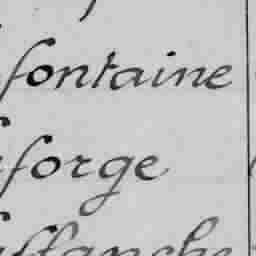 fontaine
forge